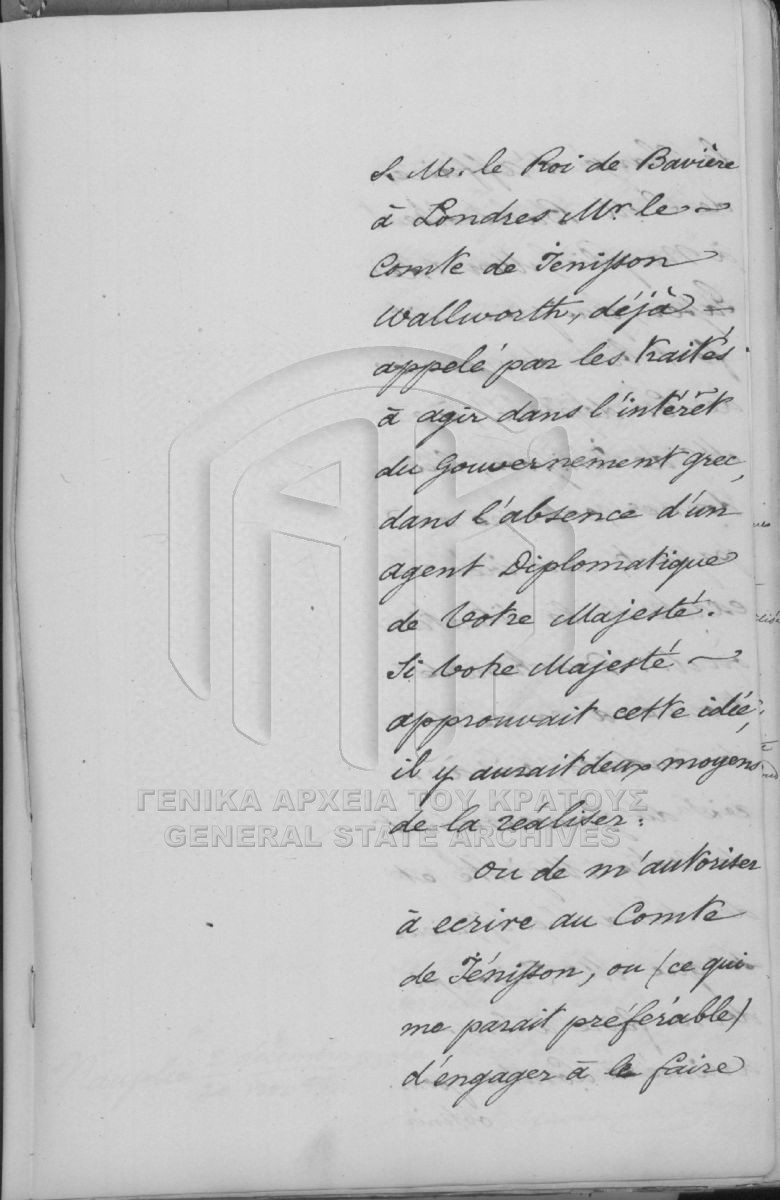 S. M. le Roi de Bavière
à Londres Mr. le
Comte de Jenisson
Wallworth, déjà
appelé par les traités
à agir dans l'intérêt
du Gouvernement grec,
dans l'absence d'un
agent Diplomatique
de Votre Majesté.
Si Votre Majesté
approuvait cette idée,
il y aurait deux moyens
de la réaliser:
ou de m'autoriser
à ecrire au Comte
de Jénisson, ou (ce qui
me parait préférable)
d'engager à le faire
ΓΕΝΙΚΑ ΑΡΧΕΙΑ ΤΟΥ ΚΡΑΤΟΥΣ
GENERAL STATE ARCHIVES